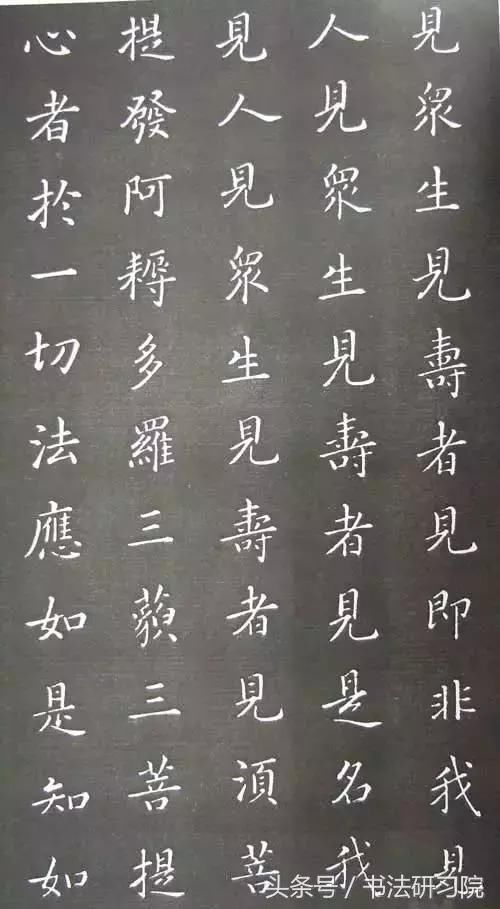 見眾生見壽者見即非我見
人見眾生見壽者見是名我
見人見眾生見壽者見湏菩
提發阿耨多羅三藐三菩提
心者於一切法應如是知如
头条号 / 书法研习院